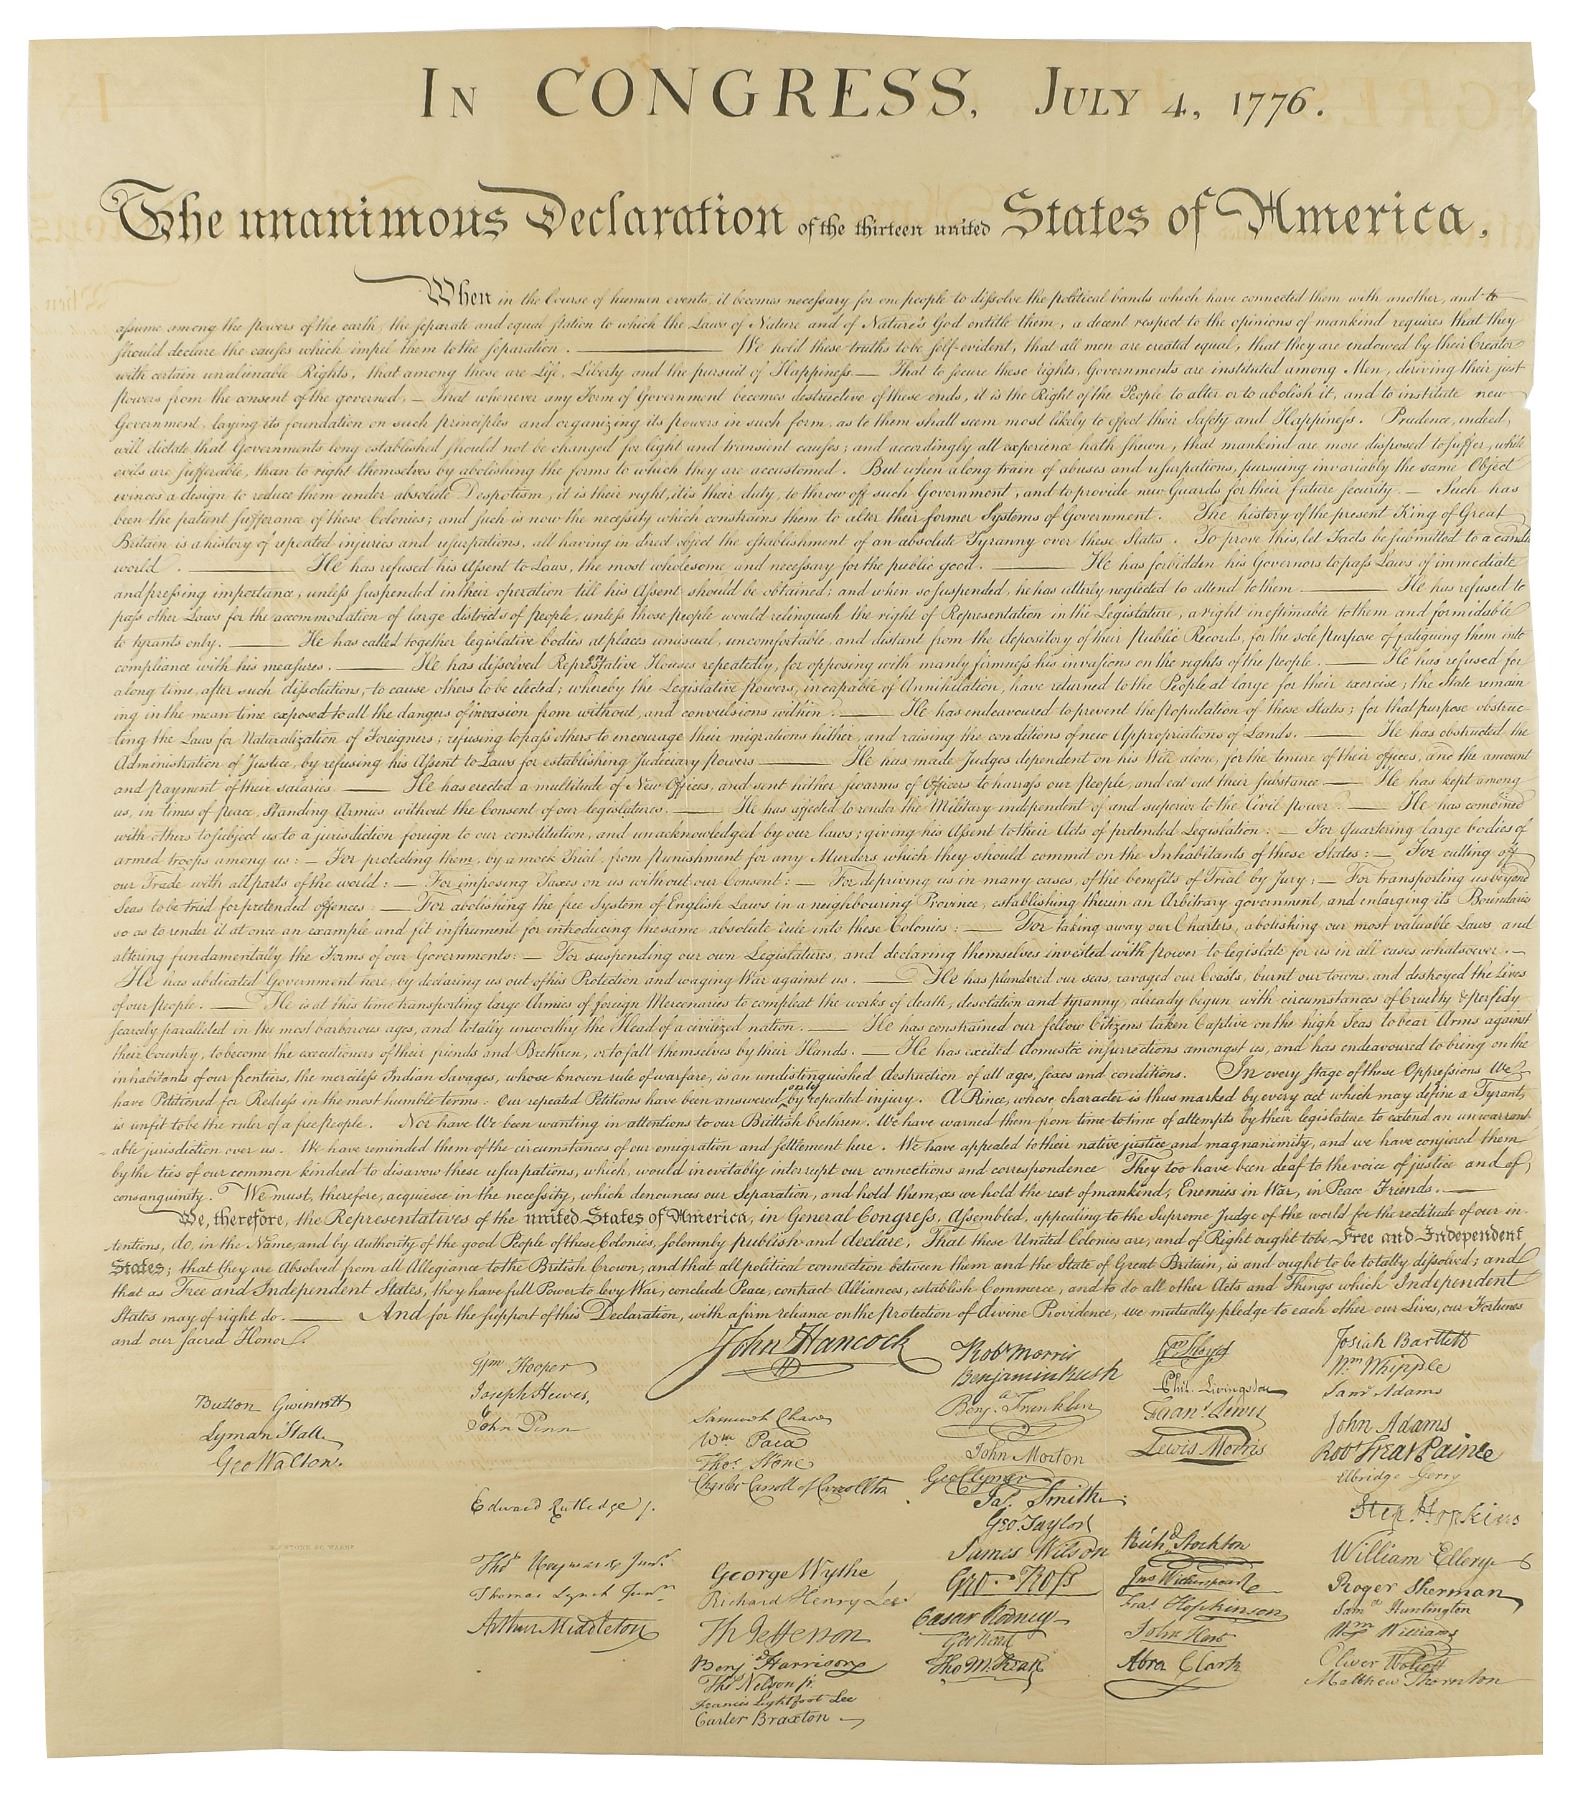 IN CONGRESS, JULY 4, 1776.
The unanimous Declaration of the thirteen united States of America,
When in the Course of human events, it becomes necessary for one people to dissolve the political bands which have connected them with another, and to
assume among the powers of the earth, the separate and equal station to which the Laws of Nature and of Nature's God entitle them, a decent respect to the opinions of mankind requires that they
should declare the causes which impel them to the separation. ——— We hold these truths to be self-evident, that all men are created equal, that they are endowed by their Creator
with certain unalienable Rights, that among these are Life, Liberty and the pursuit of Happiness — That to secure these rights, Governments are instituted among Men, deriving their just
powers from the consent of the governed, — That whenever any Form of Government becomes destructive of these ends, it is the Right of the People to alter or to abolish it, and to institute new
Government, laying its foundation on such principles and organizing its powers in such form, as to them shall seem most likely to effect their Safety and Happiness. Prudence, indeed,
will dictate that Governments long established should not be changed for light and transient causes; and accordingly all experience hath shewn, that mankind are more disposed to suffer, while
evils are sufferable, than to right themselves by abolishing the forms to which they are accustomed. But when a long train of abuses and usurpations, pursuing invariably the same Object
evinces a design to reduce them under absolute Despotism, it is their right, it is their duty, to throw off such Government, and to provide new Guards for their future security. — Such has
been the patient sufferance of these Colonies; and such is now the necessity which constrains them to alter their former Systems of Government. The history of the present King of Great
Britain is a history of repeated injuries and usurpations, all having in direct object the establishment of an absolute Tyranny over these States. To prove this, let Facts be submitted to a candid
world. ——— He has refused his Assent to Laws, the most wholesome and necessary for the public good. ——— He has forbidden his Governors to pass Laws of immediate
and pressing importance, unless suspended in their operation till his Assent should be obtained; and when so suspended, he has utterly neglected to attend to them. ——— He has refused to
pass other Laws for the accommodation of large districts of people, unless those people would relinquish the right of Representation in the Legislature, a right inestimable to them and formidable
to tyrants only. ——— He has called together legislative bodies at places unusual, uncomfortable, and distant from the depository of their Public Records, for the sole purpose of fatiguing them into
compliance with his measures. ——— He has dissolved Representative Houses repeatedly, for opposing with manly firmness his invasions on the rights of the people. ——— He has refused for
a long time, after such dissolutions, to cause others to be elected; whereby the Legislative powers, incapable of Annihilation, have returned to the People at large for their exercise; the State remain
ing in the mean time exposed to all the dangers of invasion from without, and convulsions within. ——— He has endeavoured to prevent the population of these States; for that purpose obstruc-
ting the Laws for Naturalization of Foreigners; refusing to pass others to encourage their migrations hither, and raising the conditions of new Appropriations of Lands. ——— He has obstructed the
Administration of Justice, by refusing his Assent to Laws for establishing Judiciary powers. ——— He has made Judges dependent on his Will alone, for the tenure of their offices, and the amount
and payment of their salaries. ——— He has erected a multitude of New Offices, and sent hither swarms of Officers to harrass our people, and eat out their substance. — He has kept among
us, in times of peace, Standing Armies without the Consent of our legislatures. ——— He has affected to render the Military independent of and superior to the Civil power. ——— He has combined
with others to subject us to a jurisdiction foreign to our constitution, and unacknowledged by our laws; giving his Assent to their Acts of pretended Legislation: — For Quartering large bodies of
armed troops among us: — For protecting them, by a mock Trial, from punishment for any Murders which they should commit on the Inhabitants of these States: — For cutting off
our Trade with all parts of the world: — For imposing Taxes on us without our Consent: — For depriving us in many cases, of the benefits of Trial by Jury; — For transporting us beyond
Seas to be tried for pretended offences — For abolishing the free System of English Laws in a neighbouring Province, establishing therein an Arbitrary government, and enlarging its Boundaries
so as to render it at once an example and fit instrument for introducing the same absolute rule into these Colonies: — For taking away our Charters, abolishing our most valuable Laws and
altering fundamentally the Forms of our Governments: — For suspending our own Legislatures, and declaring themselves invested with power to legislate for us in all cases whatsoever. —
He has abdicated Government here, by declaring us out of his Protection and waging War against us. ——— He has plundered our seas, ravaged our Coasts, burnt our towns, and destroyed the Lives
of our people. ——— He is at this time transporting large Armies of foreign Mercenaries to compleat the works of death, desolation and tyranny, already begun with circumstances of Cruelty & perfidy
scarcely paralleled in the most barbarous ages, and totally unworthy the Head of a civilized nation. ——— He has constrained our fellow Citizens taken Captive on the high Seas to bear Arms against
their Country, to become the executioners of their friends and Brethren, or to fall themselves by their Hands. — He has excited domestic insurrections amongst us, and has endeavoured to bring on the
inhabitants of our frontiers, the merciless Indian Savages, whose known rule of warfare, is an undistinguished destruction of all ages, sexes and conditions. In every stage of these Oppressions We
have Petitioned for Redress in the most humble terms: Our repeated Petitions have been answered only by repeated injury. A Prince, whose character is thus marked by every act which may define a Tyrant,
is unfit to be the ruler of a free people. Nor have We been wanting in attentions to our Brittish brethren. We have warned them from time to time of attempts by their legislature to extend an unwarrant
able jurisdiction over us. We have reminded them of the circumstances of our emigration and settlement here. We have appealed to their native justice and magnanimity, and we have conjured them
by the ties of our common kindred to disavow these usurpations, which, would inevitably interrupt our connections and correspondence They too have been deaf to the voice of justice and of
consanguinity. We must, therefore, acquiesce in the necessity, which denounces our Separation, and hold them, as we hold the rest of mankind, Enemies in War, in Peace Friends. ———
We, therefore, the Representatives of the united States of America, in General Congress, Assembled, appealing to the Supreme Judge of the world for the rectitude of our in-
tentions, do, in the Name, and by Authority of the good People of these Colonies, solemnly publish and declare, That these United Colonies are, and of Right ought to be Free and Independent
States; that they are Absolved from all Allegiance to the British Crown, and that all political connection between them and the State of Great Britain, is and ought to be totally dissolved; and
that as Free and Independent States, they have full Power to levy War, conclude Peace, contract Alliances, establish Commerce, and to do all other Acts and Things which Independent
States may of right do. ——— And for the support of this Declaration, with a firm reliance on the Protection of divine Providence, we mutually pledge to each other our Lives, our Fortunes
and our sacred Honor.
Button Gwinnett
Lyman Hall
Geo Walton.
Wm Hooper
Joseph Hewes,
John Penn
Edward Rutledge /.
Thos Heyward Junr.
Thomas Lynch Junr.
Arthur Middleton
John Hancock
Samuel Chase
Wm Paca
Thos. Stone
Charles Carroll of Carrollton
George Wythe
Richard Henry Lee
Th Jefferson
Benj Harrison
Thos Nelson jr.
Francis Lightfoot Lee
Carter Braxton
Robt Morris
Benjamin Rush
Benj. Franklin
John Morton
Geo Clymer
Jas. Smith
Geo. Taylor
James Wilson
Geo. Ross
Caesar Rodney
Geo Read
Tho M:Kean
Wm Floyd
Phil. Livingston
Frans. Lewis
Lewis Morris
Richd. Stockton
Jno Witherspoon
Fras. Hopkinson
John Hart
Abra Clark
Josiah Bartlett
Wm Whipple
Saml Adams
John Adams
Robt Treat Paine
Elbridge Gerry
Step. Hopkins
William Ellery
Roger Sherman
Saml Huntington
Wm Williams
Oliver Wolcott
Matthew Thornton